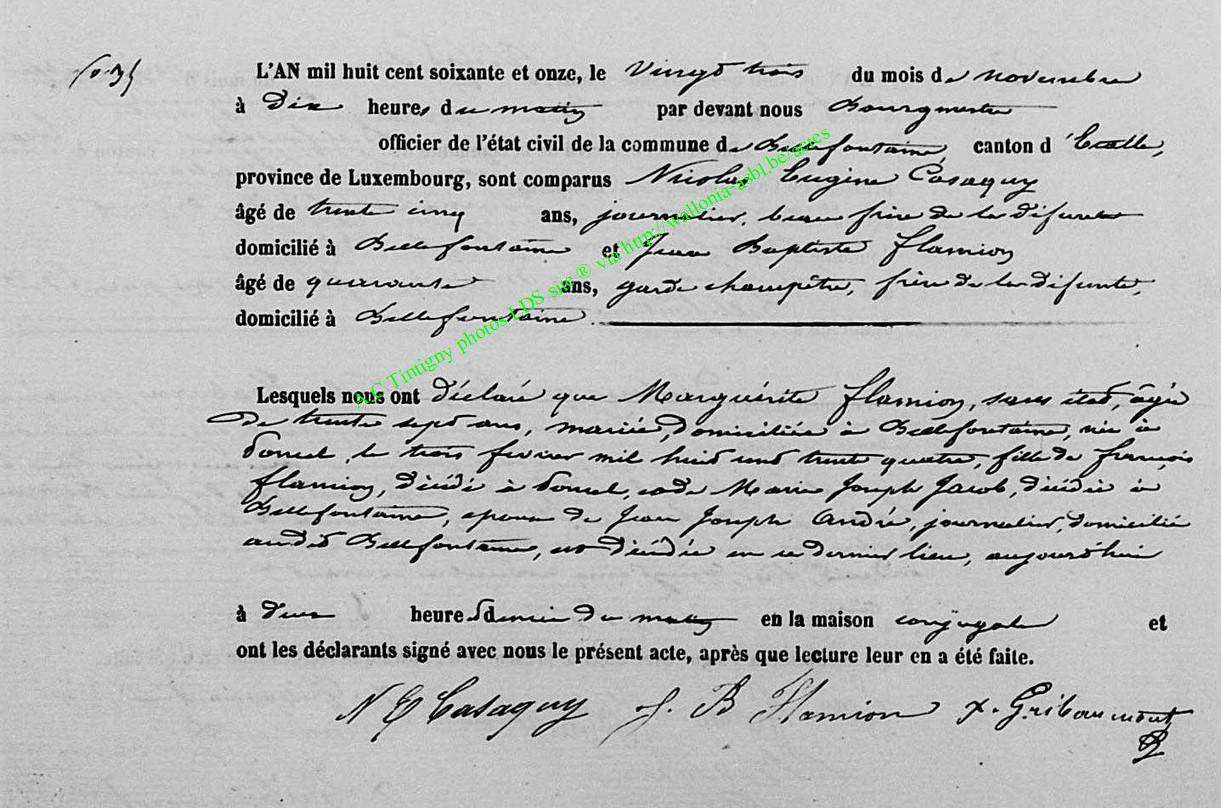 No 35
L'AN mil huit cent soixante et onze, le vingt trois du mois de novembre
à dix heures du matin par devant nous Bourgmestre
officier de l'état civil de la commune de Bellefontaine, canton d'Etalle,
province de Luxembourg, sont comparus Nicolas Eugène Casaquy
âgé de trente cinq ans, journalier, beau frère de la défunte
domicilié à Bellefontaine et Jean Baptiste Flamion
âgé de quarante ans, garde champêtre, frère de la défunte,
domicilié à Bellefontaine.
Lesquels nous ont déclaré que Marguérite Flamion, sans état, âgée
de trente sept ans, mariée, domiciliée à Bellefontaine, née à
le trois fevrier mil huit cent trente quatre, fille de françois
Flamion, décédé à et de Marie Joseph Jacob, décédée à
Bellefontaine, epouse de Jean Joseph André, journalier, domicilié
audit Bellefontaine, est décédée en ce dernier lieu, aujourd'hui
à deux heures & demie du matin en la maison conjugale et
ont les déclarants signé avec nous le présent acte, après que lecture leur en a été faite.
N E Casaquy J. B Flamion X. Gribaumont
A-C Tintigny photos LDS sur ® via http://wallonia-asbl.be/actes